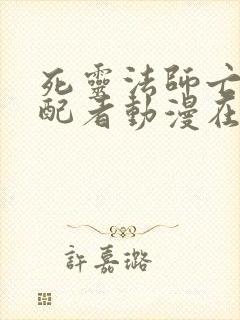 死靈法師亡
配者動漫在
許嘉璐